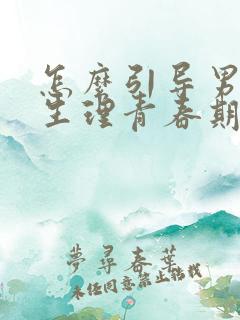 怎麼引导男
生理青春期
夢尋春葉
未经同意禁止转载